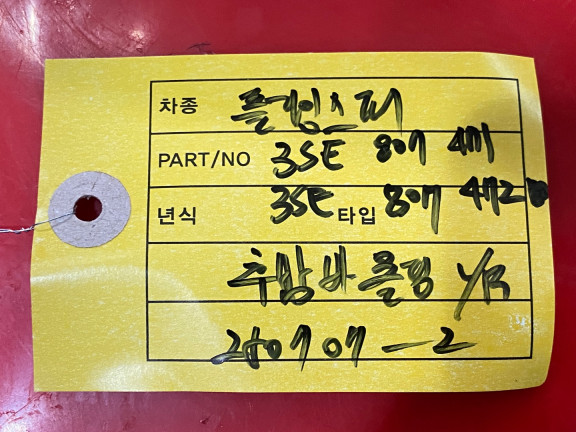 차종 플라잉스퍼
PART/NO 3SE 807 471
년식 3SE 타입 807 472
추밤바 플핑 L/R
260707-2